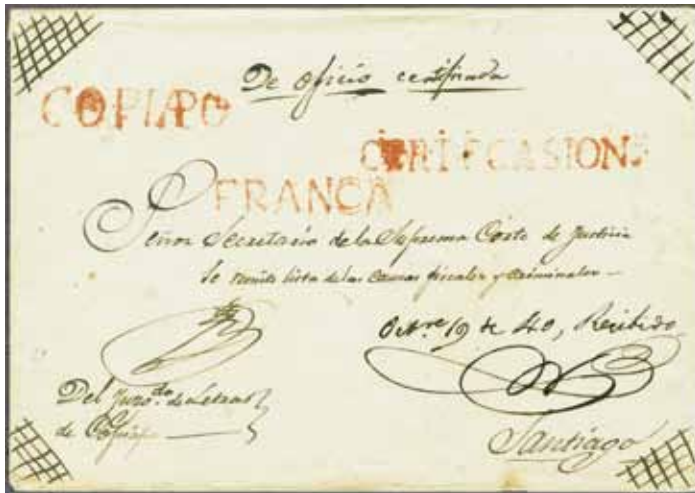 De oficio certificada
COPIAPO
CERTIFCASION
FRANCA
Señor Secretario de la Suprema Corte de Justicia
Se remite lista de las Causas fiscales y Criminales
Octre 19 de 40, Recibido
Del Juzgdo de Letras
de Copiapo
Santiago